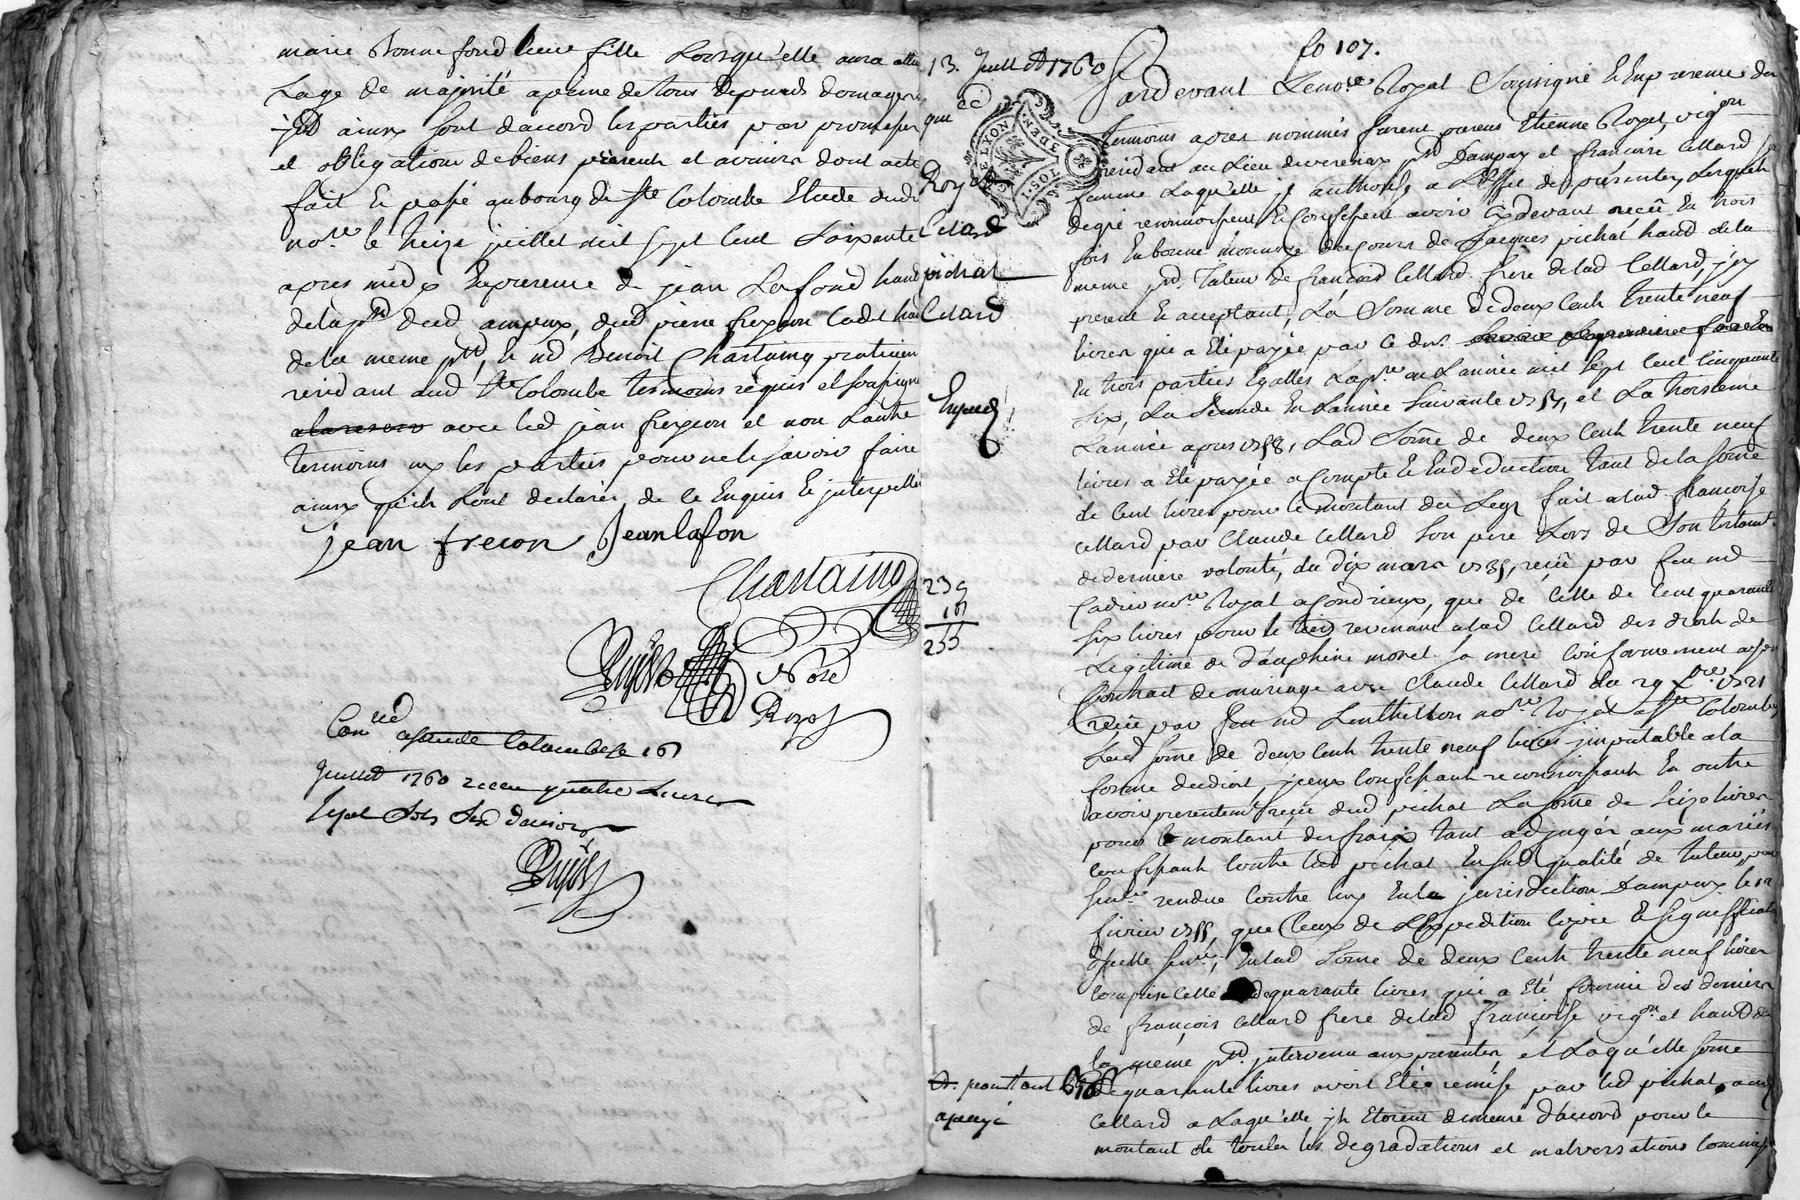 marie Bonnefond leur fille Lorsqu'elle aura attin
Lage de majorité apeine de tous depends domages
ainsy sont daccord les parties par promesse
et obligation de biens presents et avenirs dont acte
fait et passé au bourg de Ste Colombe Etude dud
nore le treize juillet mil sept cent soixante
apres midy En presence de jean Lafond habt
de la pse dud ampuis, dud pierre freyçon Cadet hab
de la meme psse, et md Benoit Chastaing praticien
residant aud Ste Colombe temoins requis et soussignes
avec led jean freyçon et non Lautre
temoins ny les parties pour ne le scavoir faire
ainsy qu'ils Lont declarés de ce Enquis et interpellés
jean frecon Jean lafon
Chastaing
Nore
Royal
Conlé a Sainte Colombe le 16
Juillet 1760 receu quatre Livres
Sept Sols Six deniers
fo 107.
13. Juillet 1760
qui
Royet
Celard
pichat
Celard
Expedié
239
16
255
GE LYON
1 SOL
3 DEN.
Pardevant Le nore Royal Soussigné et En presence des
temoins apres nommés furent presens Etienne Royet vigon
residant au Lieu de verenay psse Dampuy et francoise Cellard sa
femme Laquelle il authorise a L'effet des présentes, Lesquels
de gré reconnoissent et Confessent avoir Cy devant reçû En trois
fois En bonne monnoye de Cours de Jacques pichat habd de la
meme psse. Tuteur de françois Cellard frere de lad Cellard, icy
present et acceptant, La Somme de deux Cent trente neuf
livres qui a Eté payée par Ce der.
En trois parties Egalles La pre en Lannée mil Sept Cent Cinquante
Six, La Seconde En Lannée Suivante 1757, et La troisieme
Lannée apres 1758, Lad Some de deux Cent trente neuf
livres a Eté payée a Compte et En deduction tant de la some
de Cent livres pour le montant du Legs fait a lad francoise
Cellard par Claude Cellard Son pere Lors de Son testamt
de derniere volonté, du dix mars 1735, reçû par feu md
Cadier nore Royal a Condrieux, que de Celle de Cent quarante
Six livres pour le tiers revenant a lad Cellard des droits de
Legitime de dauphine morel sa mere Conformement a son
Contrait de mariage avec Claude Cellard du 29 xbre 1721
reçû par feu md Lenthillon nore Royal a Ste Colombe,
Lad Some de deux Cent trente neuf livres imputable a la
forme du droit, iceux Confessants reconnoissants En outre
avoir presentemt reçû dud pichat La some de Seize livres
pour le montant des fraix tant adjugés aux mariés
confessants Contre led pichat En sad qualité de tuteur par
Sence rendue Contre luy En la jurisdiction Dampuy le 12
fevrier 1755, que Ceux de L'Expedition Copie et Signification
d'icelle Sence, En lad Some de deux Cent trente neuf livres
Comprise Celle de quarante livres qui a Eté fournie des deniers
de françois Cellard frere de lad françoise vigon et habd de
la même psse intervenu aux presentes et Laqu'elle some
de quarante livres avoit Eté remise par led pichat aud
Cellard a Laqu'elle ils Etoient demeuré d'accord pour le
montant de toutes les degradations et malversations Commises
pourtant